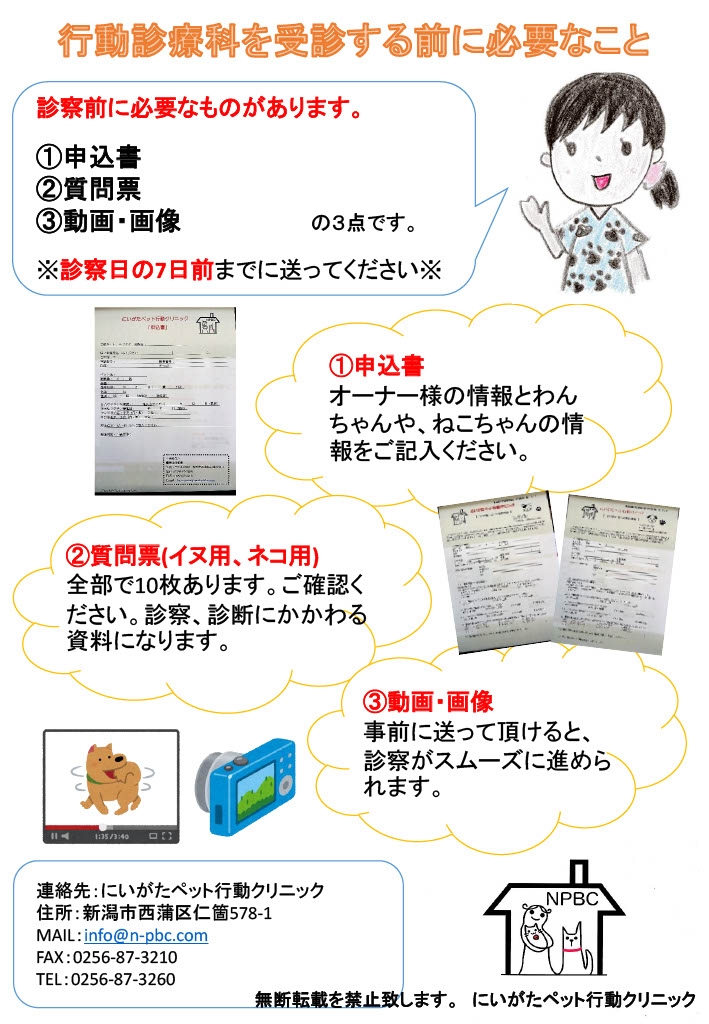 行動診療科を受診する前に必要なこと
診察前に必要なものがあります。
①申込書
②質問票
③動画・画像 の３点です。
※診察日の7日前までに送ってください※
にいがたペット行動クリニック
「申込書」
①申込書
オーナー様の情報とわん
ちゃんや、ねこちゃんの情
報をご記入ください。
②質問票(イヌ用、ネコ用)
全部で10枚あります。ご確認く
ださい。診察、診断にかかわる
資料になります。
にいがたペット行動クリニック
③動画・画像
事前に送って頂けると、
診察がスムーズに進めら
れます。
1:35/3:40
連絡先：にいがたペット行動クリニック
住所：新潟市西蒲区仁箇578-1
MAIL：info@n-pbc.com
FAX：0256-87-3210
TEL：0256-87-3260
NPBC
無断転載を禁止致します。 にいがたペット行動クリニック